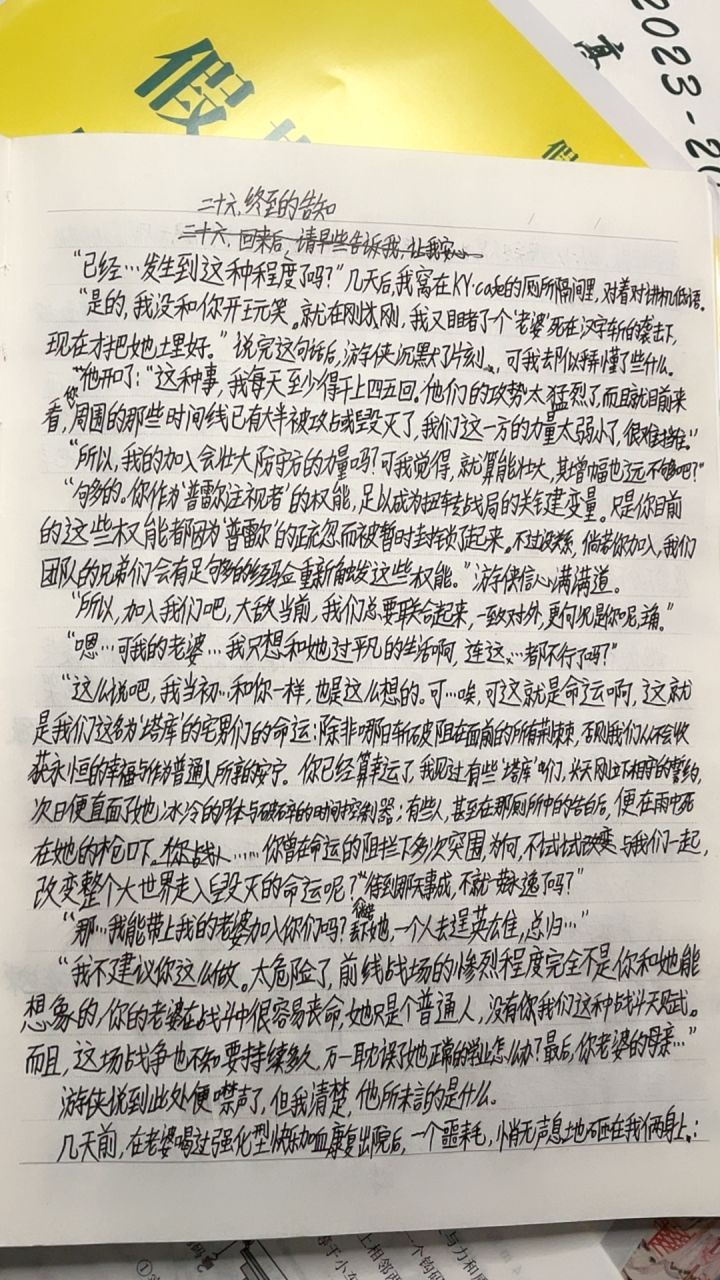 假
假
2023-2
高
二十六、终至的告知
二十六、回来后,请早些告诉我,让我安心
“已经…发生到这种程度了吗?”几天后,我窝在KY·cafe的厕所隔间里,对着对讲机低语。
“是的,我没和你开玩笑。就在刚刚,我又目睹了个‘老婆’死在汉字斩的袭击下,
现在才把她土里好。”说完这句话后,游侠沉默了片刻,可我却似乎弄懂了些什么。
他开口了:“这种事,我每天至少得干上四五回。他们的攻势太猛烈了,而且就目前来
看,你周围的那些时间线已有大半被攻占或毁灭了,我们这一方的力量太弱小了,很难抵挡。”
“所以,我的加入会壮大防守方的力量吗?可我觉得,就算能壮大,其增幅也远不够吧?”
“够多的。你作为‘普雷尔注视者’的权能,足以成为扭转战局的关键变量。只是你目前
的这些权能都因为‘普雷尔’的疏忽而被暂时封锁了起来。不过没关系,倘若你加入,我们
团队的兄弟们会有足够多的经验重新触发这些权能。”游侠信心满满道。
“所以,加入我们吧,大敌当前,我们总要联合起来,一致对外,更何况是你呢,主角。”
“嗯…可我的老婆…我只想和她过平凡的生活啊,连这…都不行了吗?”
“这么说吧,我当初…和你一样,也是这么想的。可…唉,可这就是命运啊,这就
是我们这名为‘塔库’的宅男们的命运:除非哪日斩破阻在面前的所有荆棘,否则我们从不会收
获永恒的幸福与作为普通人所享的安宁。你已经算幸运了,我见过有些‘塔库’们,当天刚立下相守的誓约,
次日便直面了她冰冷的形体与破碎的时间控制器;有些人,甚至在那厕所中的告白后,便在雨中死
在她的枪口下。……你曾在命运的阻拦下多次突围,为何,不试试与我们一起,
改变整个大世界走入毁灭的命运呢?待到那天事成,不就一劳永逸了吗?”
“那…我能带上我的老婆加入你们吗?丢下她,一个人去逞英雄,总归…”
“我不建议你这么做。太危险了,前线战场的惨烈程度完全不是你和她能
想象的,你的老婆在战斗中很容易丧命,她只是个普通人,没有你我们这种战斗天赋。
而且,这场战争也不知要持续多久,万一耽误了她正常的学业怎么办?最后,你老婆的母亲…”
游侠说到此处便噤声了,但我清楚,他所未言的是什么。
几天前,在老婆喝过强化型快乐加血康复出院后,一个噩耗,悄无声息地砸在我俩身上: